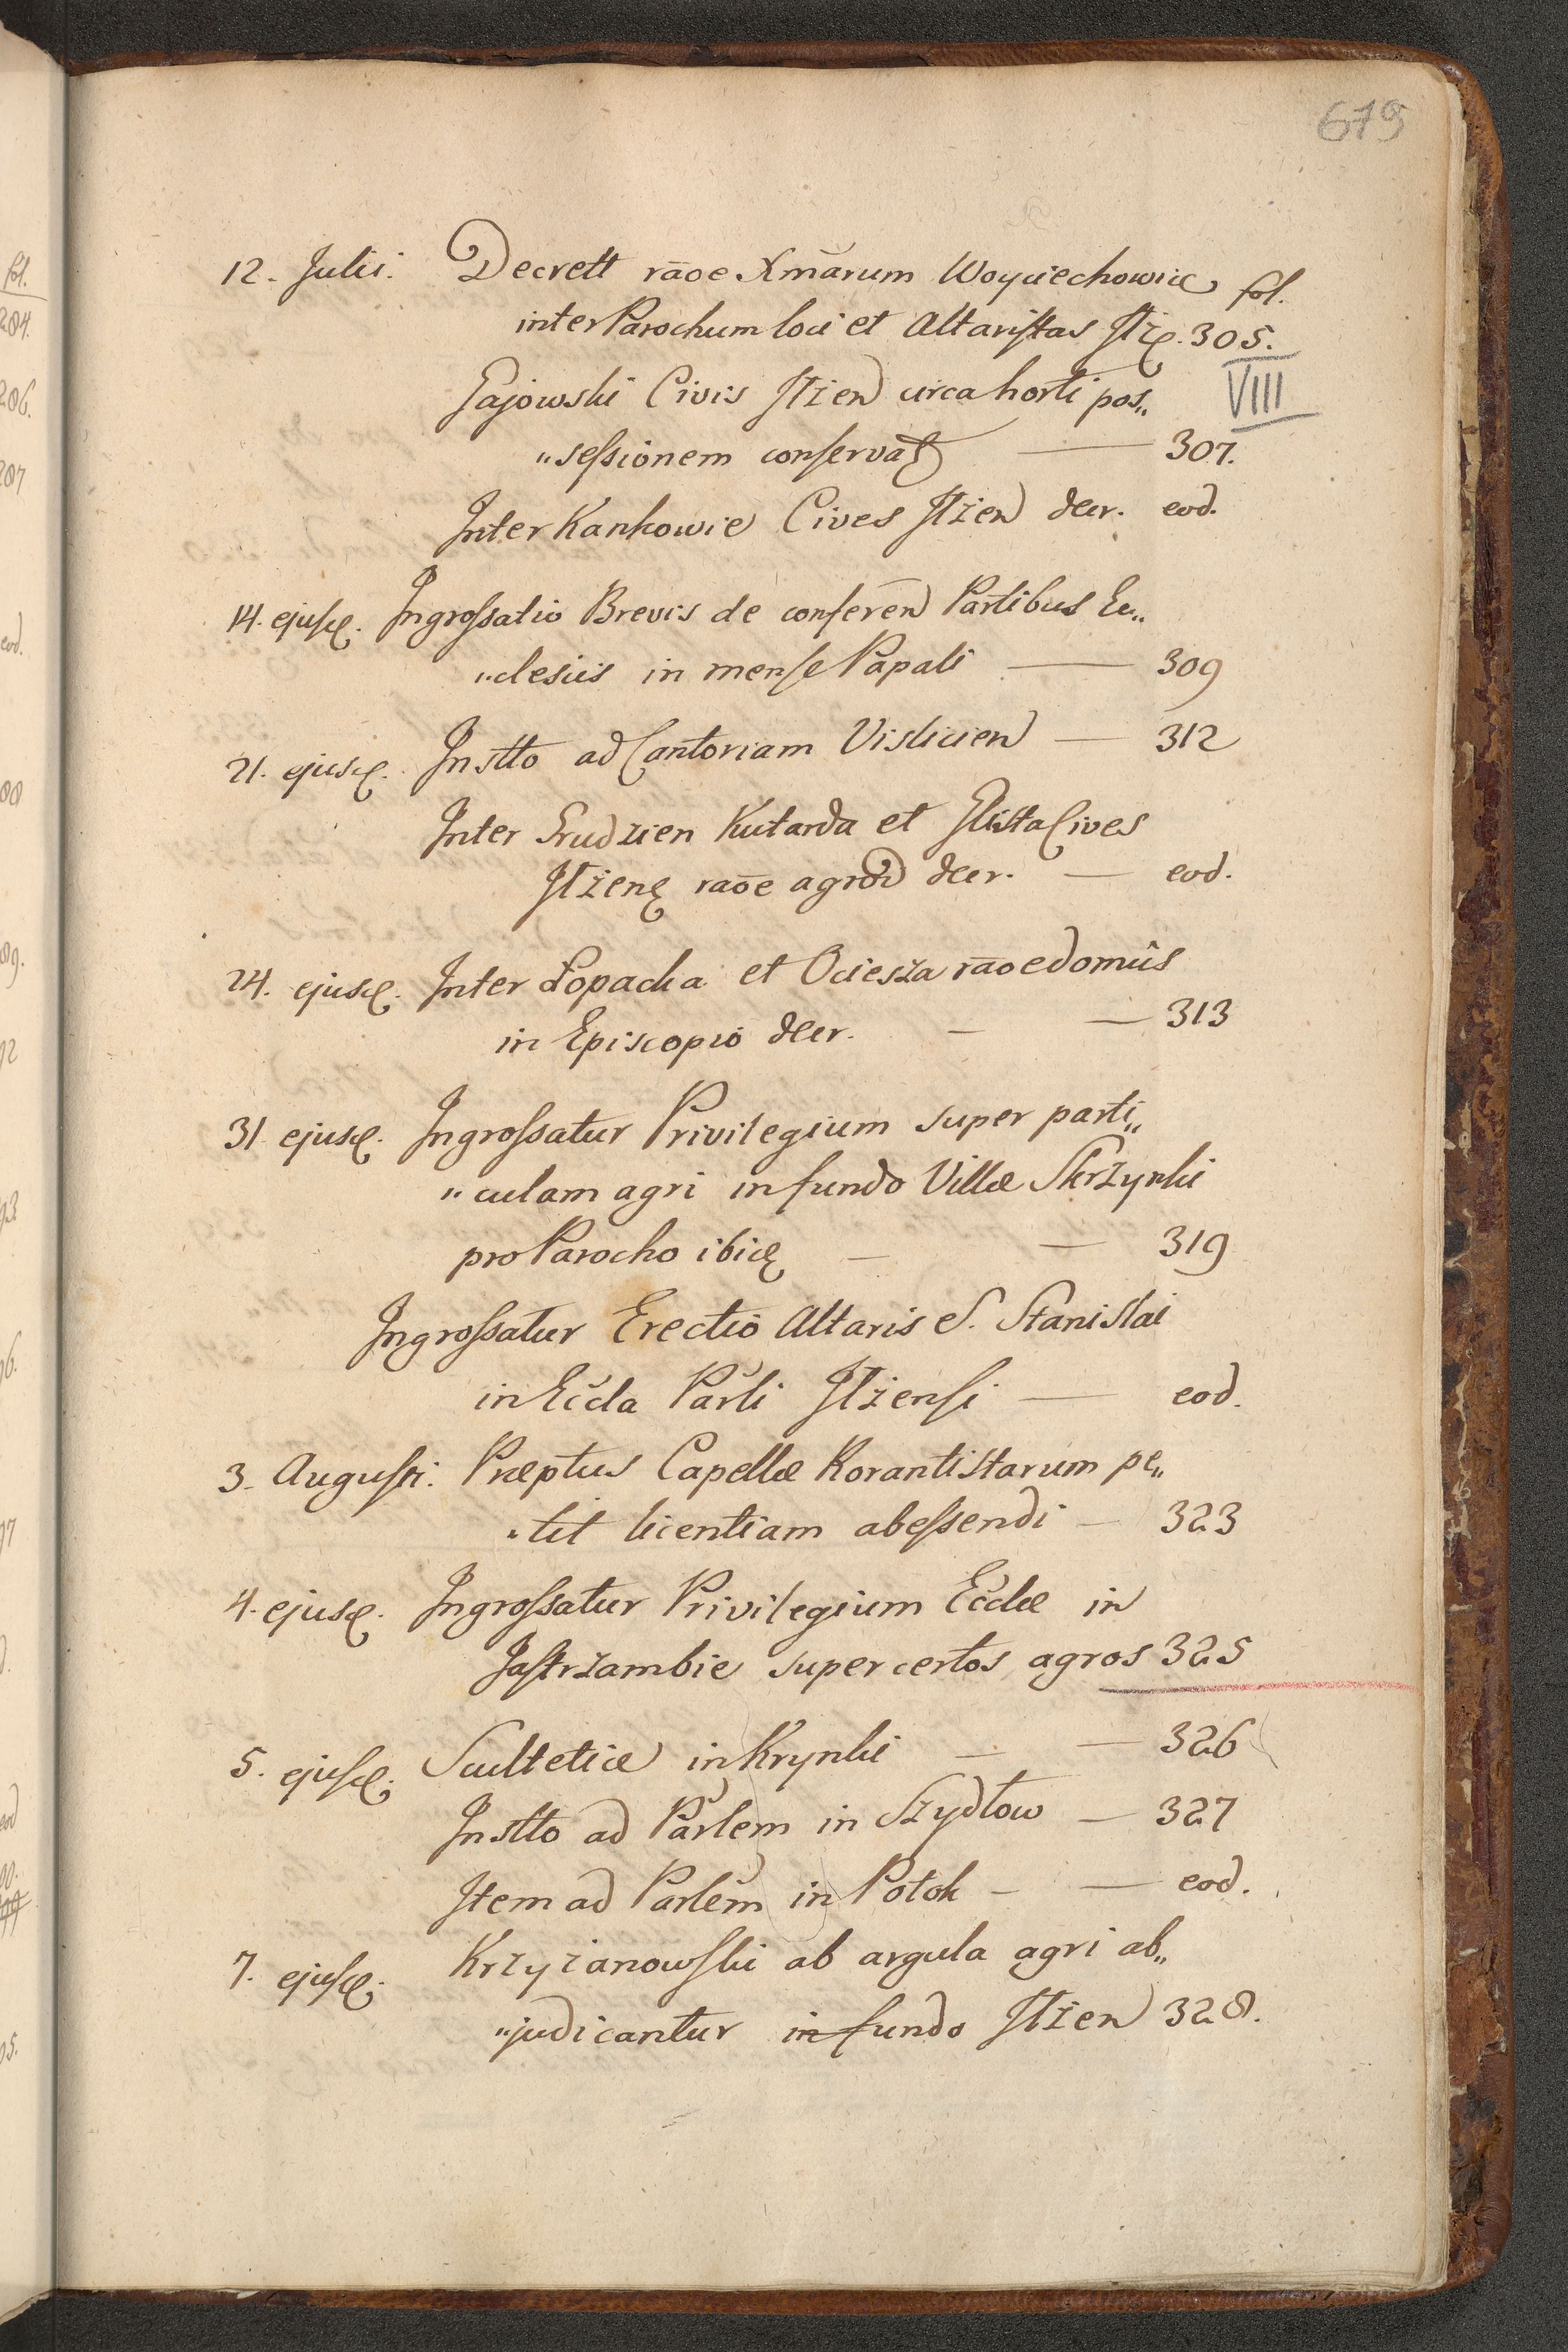 679
fol.
12. Julii. Decrett raōe Xmārum Woyciechowice
inter Parochum loci et Altaristas Ilż. 305.
VIII
Gajowski Civis Ilżen circa horti pos„
„sessionem conservat — 307.
Inter Kankowie Cives Ilżen decr. eod.
14. ejusd. Ingrossatio Brevis de conferēn Partibus Ec„
„clesiis in mense Papali — 309
21. ejusd. Instto ad Cantoriam Vislicien — 312
Inter Grudzien Kutarda et Glista Cives
Ilżens raōe agrōr decr. — eod.
24. ejusd. Inter Łopacka et Ociesza raōe domûs
in Episcopio decr. — — 313
31 ejusd. Ingrossatur Privilegium super parti„
„culam agri in fundo Villæ Skrzynki
pro Parocho ibid — — 319
Ingrossatur Erectio Altaris S. Stanislai
in Eccla Parli Ilżensi — eod.
3. Augusti. Præptus Capellæ Rorantistarum pe„
„tit licentiam abessendi — 323
4. ejusd. Ingrossatur Privilegium Ecclæ in
Jastrzambie super certos agros 325
5. ejusd. Scultetiæ in Krynki — — 326
Instto ad Parlem in Szydłow — 327
Item ad Parlem in Potok — — eod.
7. ejusd. Krzyżanowski ab argula agri ab„
„judicantur in fundo Ilżen 328.